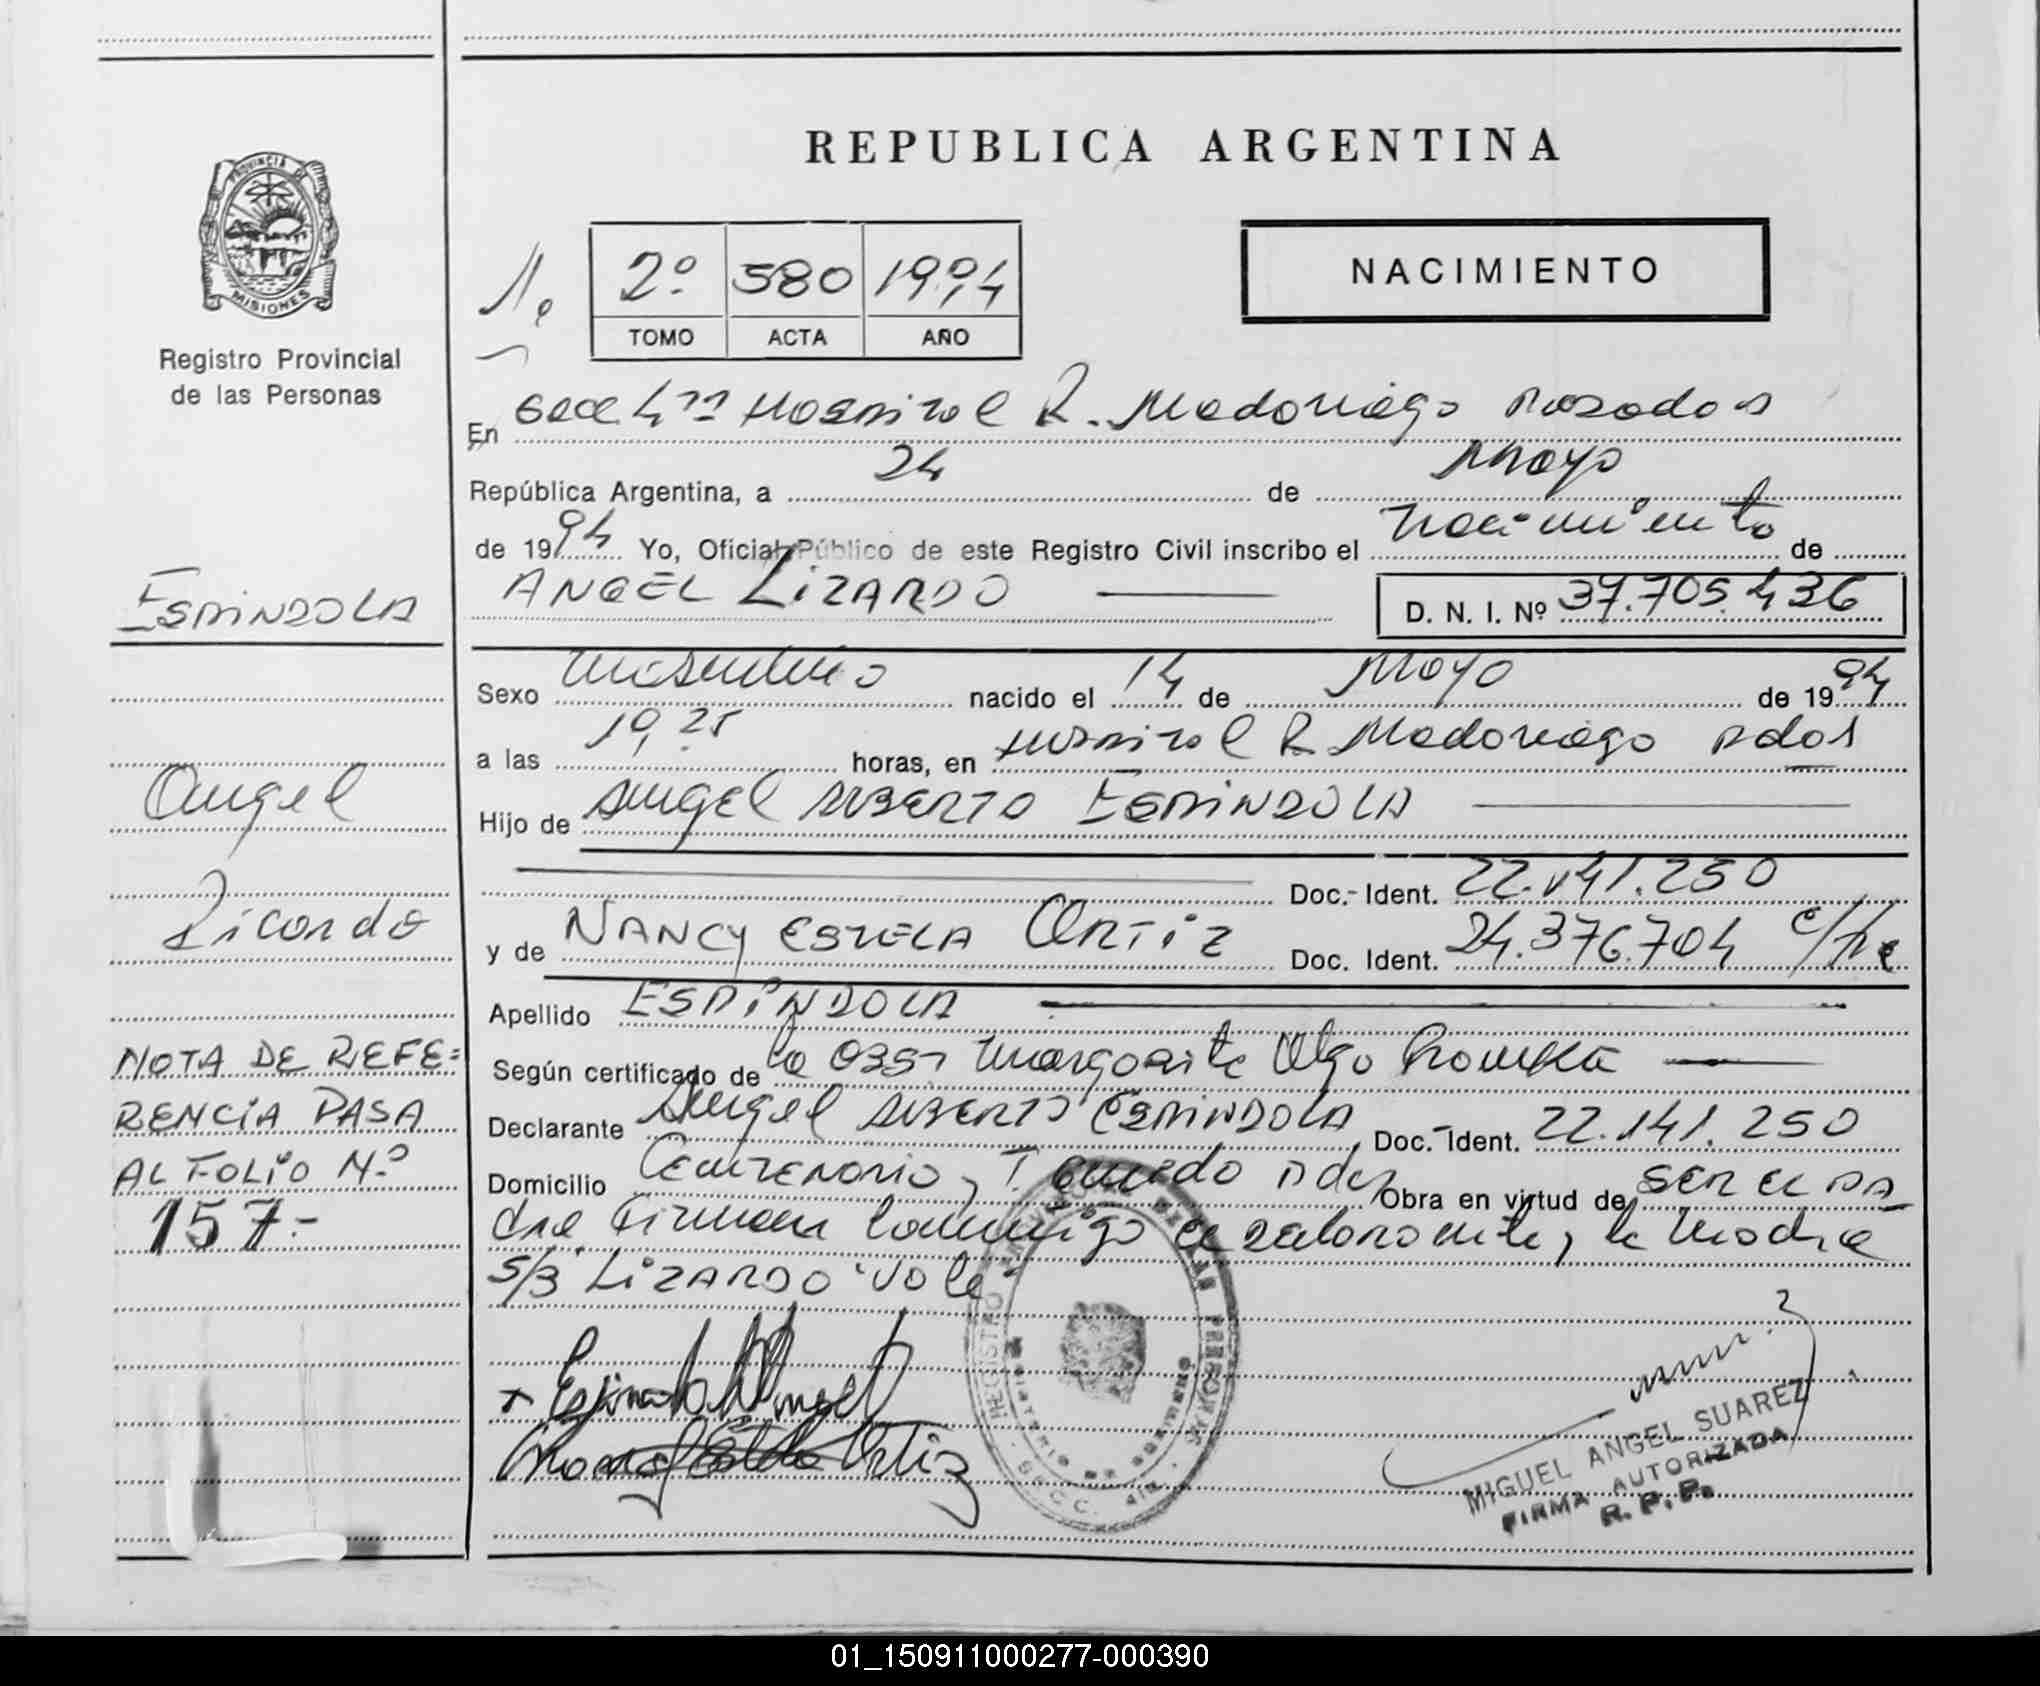 REPUBLICA ARGENTINA
PROVINCIA DE
MISIONES
Registro Provincial
de las Personas
2º 580 1994
TOMO ACTA AÑO
NACIMIENTO
En Secc 4ta Hospital R. Madariaga Posadas
República Argentina, a 24 de Mayo
de 1994 Yo, Oficial Público de este Registro Civil inscribo el nacimiento de
ANGEL LIZARDO
D. N. I. Nº 37.705.436
ESPINDOLA
Sexo masculino nacido el 14 de Mayo de 1994
a las 19,25 horas, en Hospital R Madariaga Pdas
Angel
Hijo de Angel ALBERTO ESPINDOLA
Doc. Ident. 22.141.250
Ricardo
y de NANCY ESTELA ORTIZ Doc. Ident. 24.376.704
Apellido ESPINDOLA
NOTA DE REFE=
RENCIA PASA
AL FOLIO Nº
157-
Según certificado de la Obst Margarita Olga
Declarante Angel ALBERTO ESPINDOLA, Doc. Ident. 22.141.250
Domicilio Centenario, Pdas Obra en virtud de SER EL PA
dre Firman conmigo el declarante, la Madre
S/B LIZARDO Vale
Espindola Angel
Ortiz
REGISTRO PERSONAS
MIGUEL ANGEL SUAREZ
FIRMA AUTORIZADA
R. P. P.
01_150911000277-000390